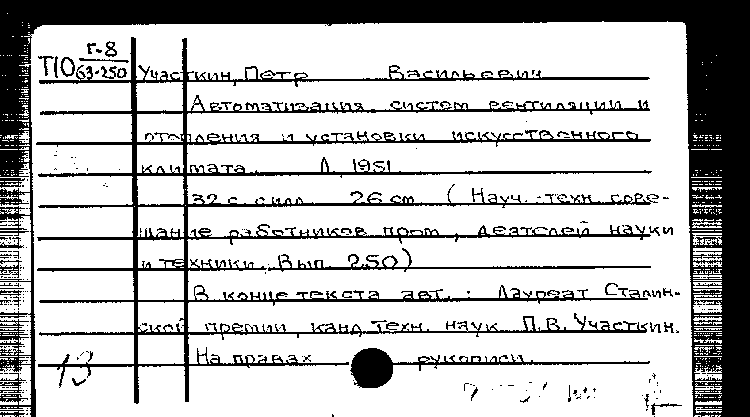 Г-8
П10 63-250 Участкин, Петр Васильевич
Автоматизация систем вентиляции и
отопления и установки искусственного
климата. Л, 1951.
32 с. с илл. 26 см. (Науч.-техн. сове-
щание работников пром., деятелей науки
и техники. Вып. 250)
В конце текста авт.: Лауреат Сталин-
ской премии, канд. техн. наук П.В. Участкин.
На правах рукописи.
13